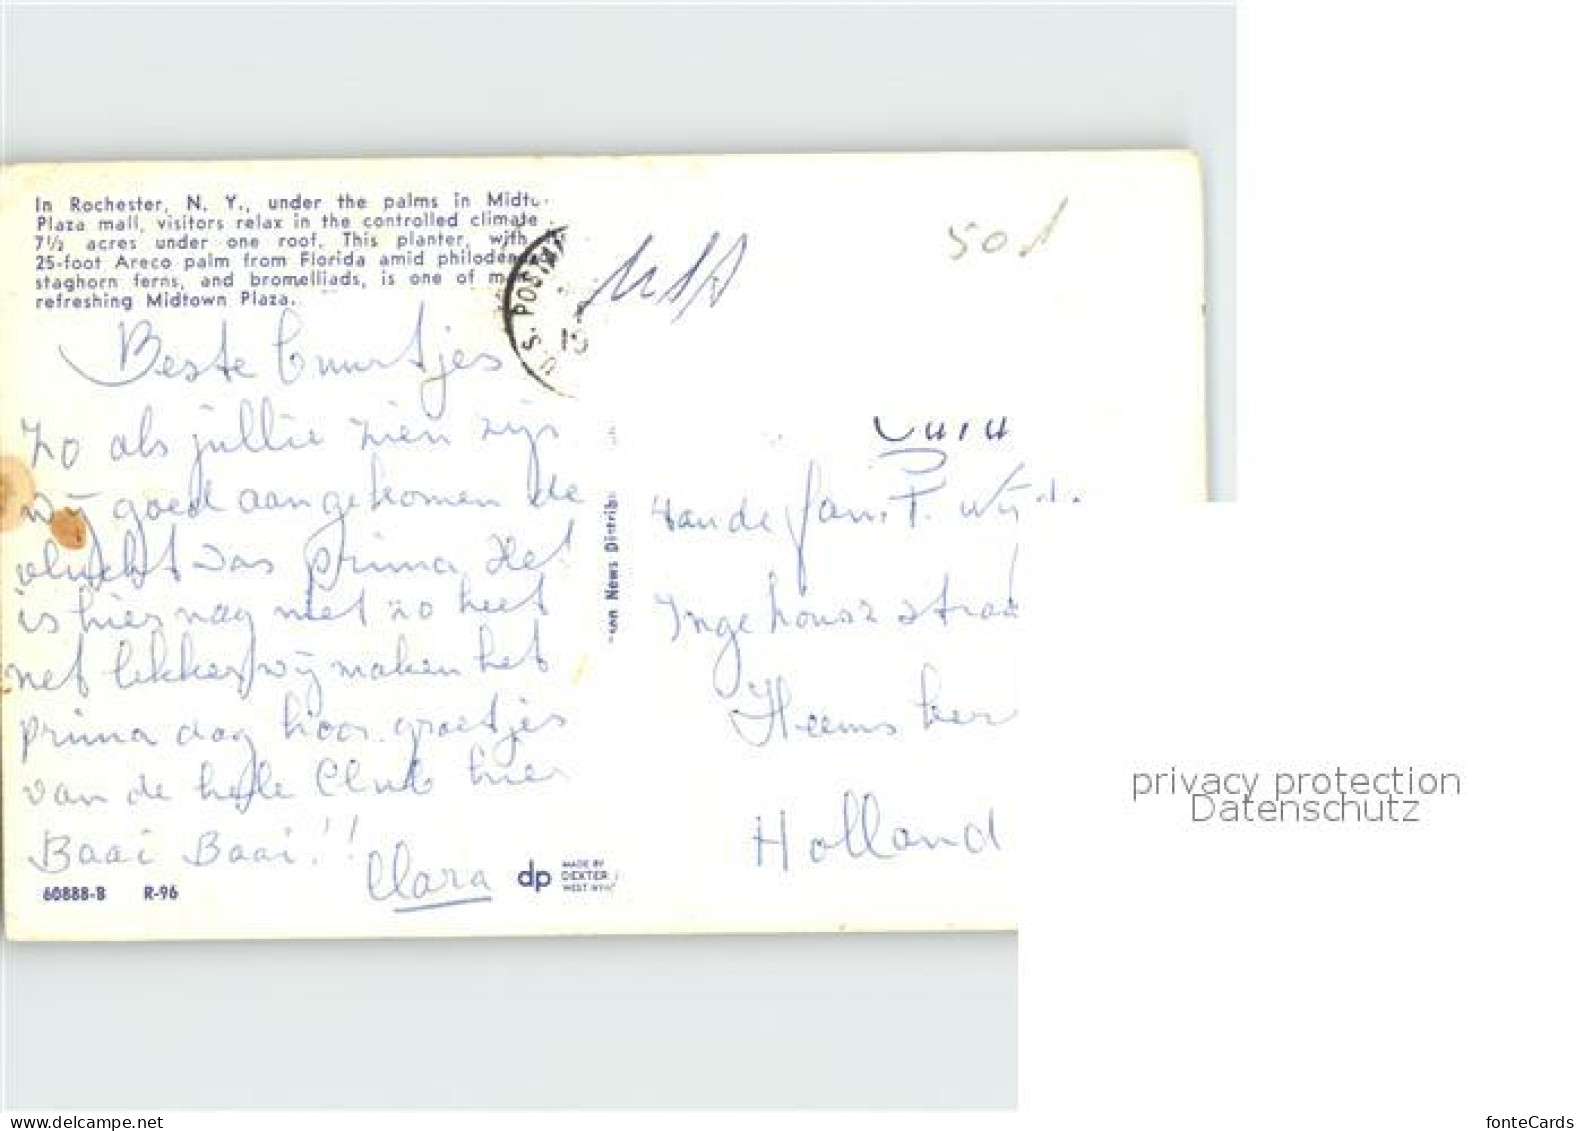 In Rochester, N. Y., under the palms in
Plaza mall, visitors relax in the controlled climate
7½ acres under one roof. This planter, with
25-foot Areco palm from Florida amid
staghorn ferns, and bromelliads, is one of
refreshing Midtown Plaza.
U.S. POSTA
19
USA
501
Beste buurtjes
zo als jullie zien zijn
wij goed aangekomen de
vlucht was prima. Het
is hier nog niet zo heet
net lekker wij maken het
prima dag hoor. groetjes
van de hele Club hier
Baai Baai!!
Clara
60888-B R-96
dp
MADE BY
DEXTER
WEST NYA
News Distrib
Aan de fam. T.
Ingehousz straa
Heemsker
Holland
privacy protection
Datenschutz
fonteCards